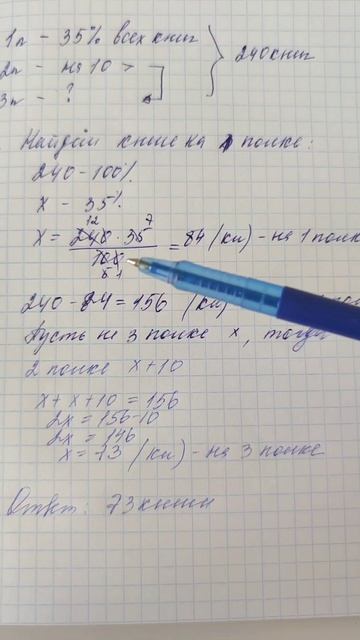 1п - 35% всех книг
240 книг
2п - на 10 >
3п - ?
Найдём книги на 1 полке:
240 - 100%
x - 35%
12 7
x = 240 · 35 / 100 = 84 (кн) - на 1 полке
5 1
240 - 84 = 156 (кн)
Пусть на 3 полке x, тогда
2 полке x + 10
x + x + 10 = 156
2x = 156 - 10
2x = 146
x = 73 (кн) - на 3 полке
Ответ: 73 книги